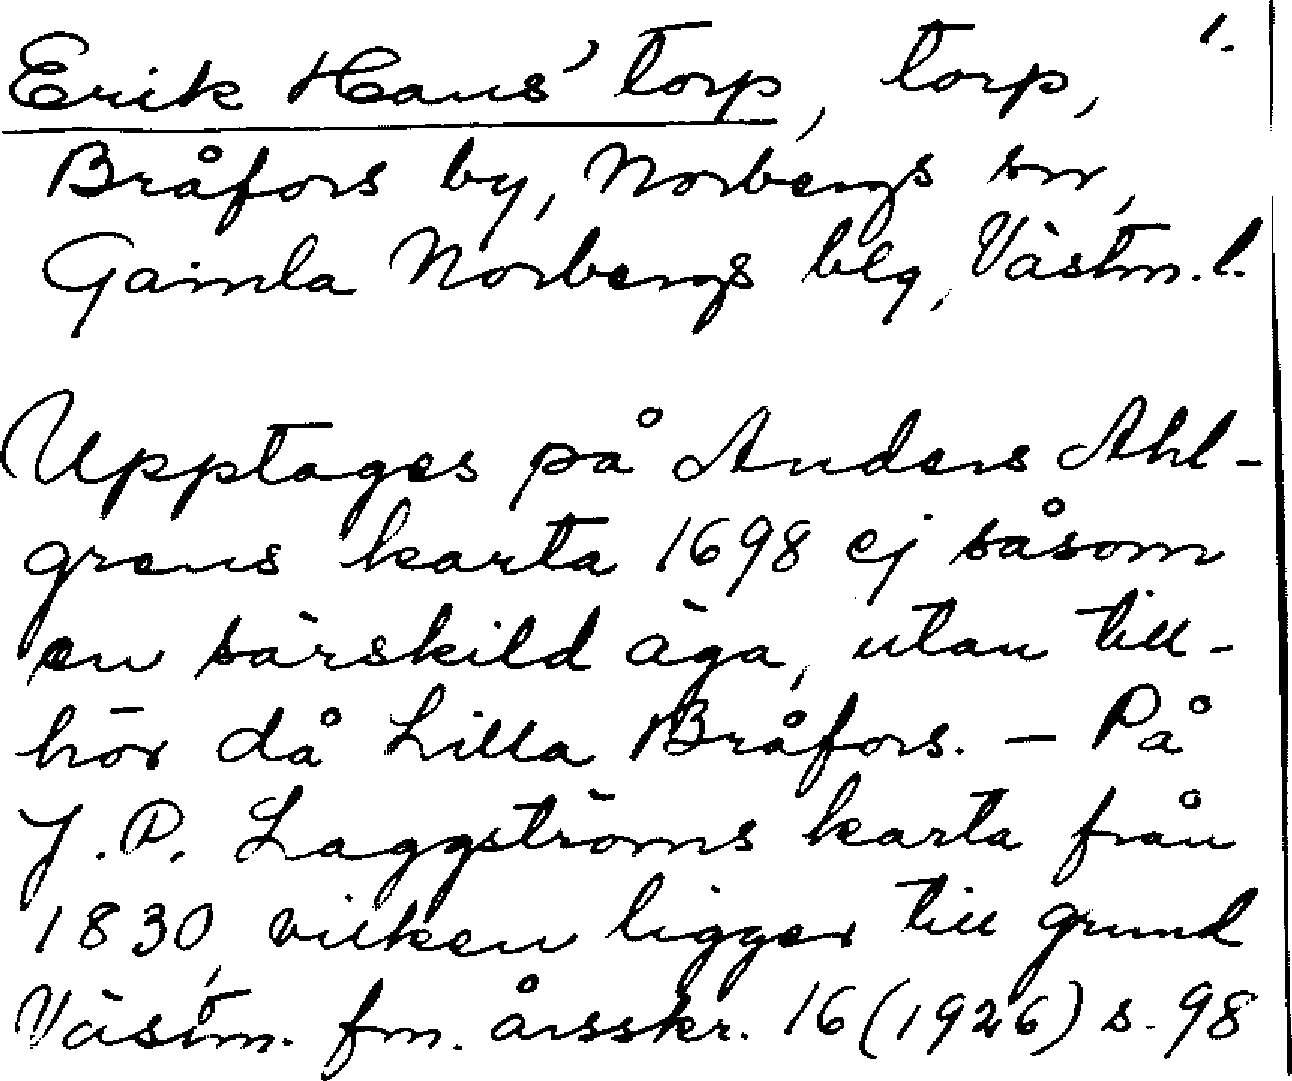 1.
Erik Hans' torp, torp,
Bråfors by, Norbergs sn,
Gamla Norbergs blg, Västm. l.
Upptages på Anders Ahl-
grens karta 1698 ej såsom
en särskild äga, utan till-
hör då Lilla Bråfors. - På
J. P. Laggströms karta från
1830, vilken ligger till grund
Västm. fm. årsskr. 16 (1926) s. 98